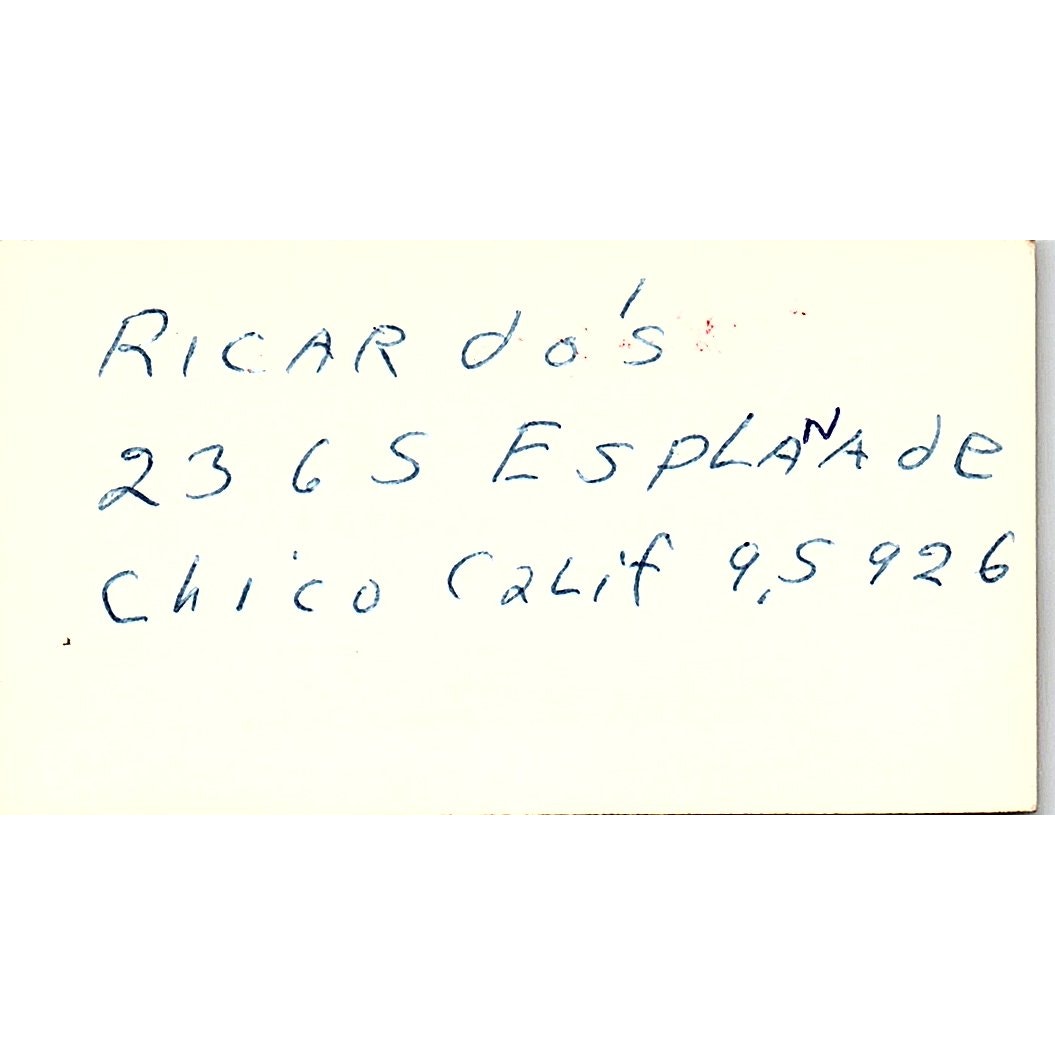 RICARdo's
2365 EspLANAde
Chico CaLif 95926